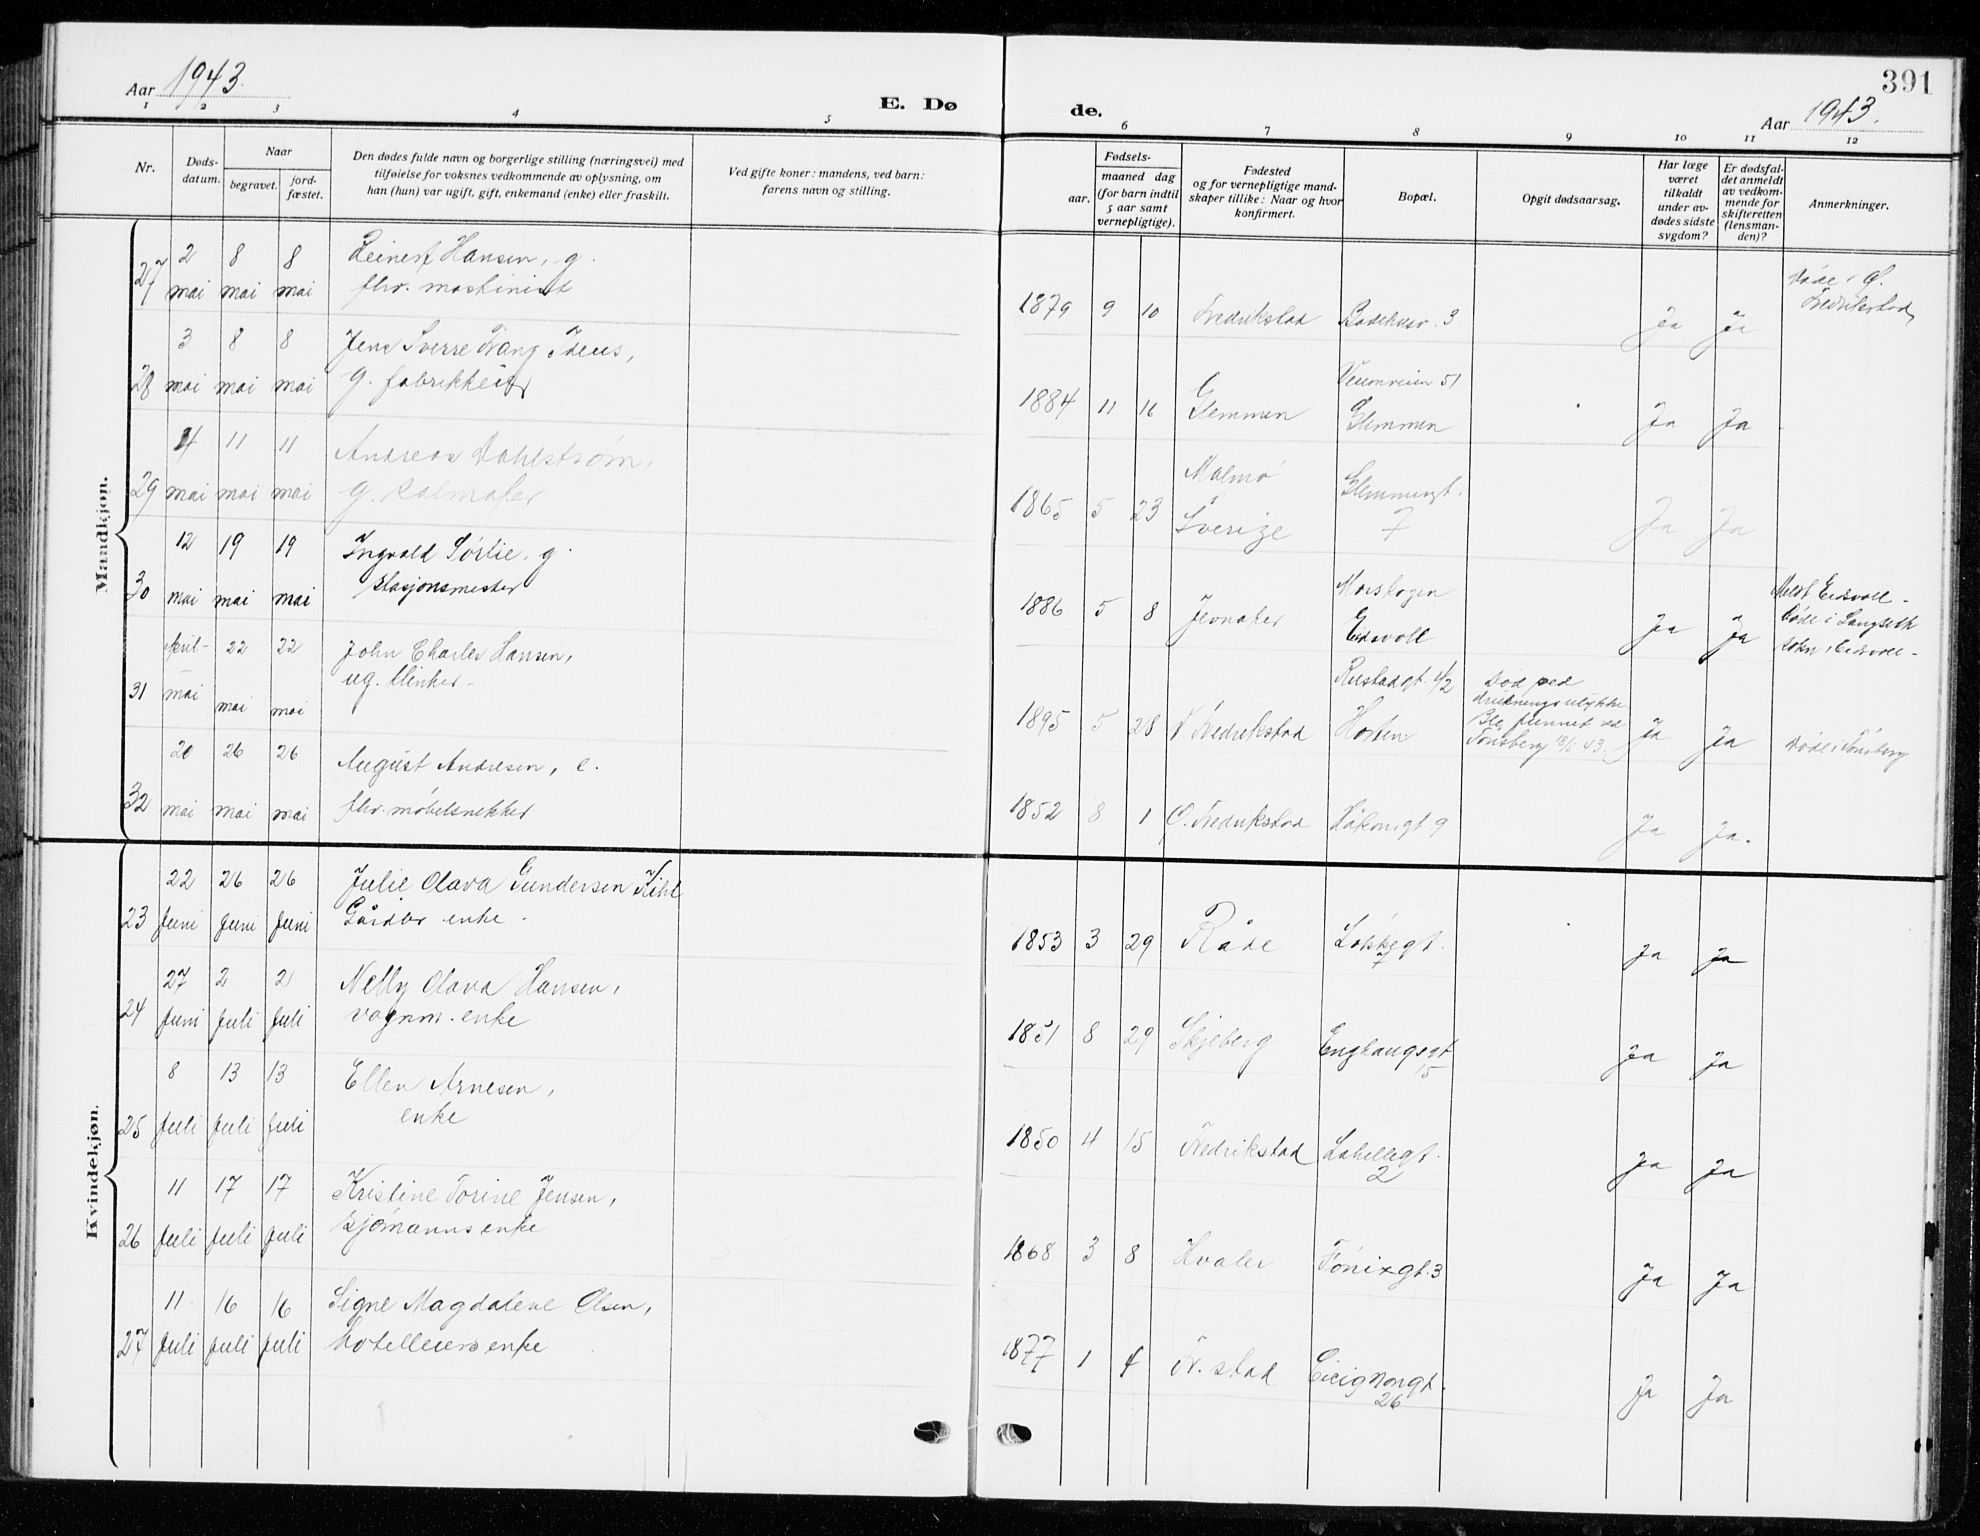 391
Aar 1943.
E. Døde.
Aar 1943.
1 2 3 4 5 6 7 8 9 10 11 12
Nr.
Døds-
datum.
Naar
begravet.
jord-
fæstet.
Den dødes fulde navn og borgerlige stilling (næringsvei) med
tilføielse for voksnes vedkommende av oplysning, om
han (hun) var ugift, gift, enkemand (enke) eller fraskilt.
Ved gifte koner: mandens, ved barn:
farens navn og stilling.
Fødsels-
aar.
maaned dag
(for barn indtil
5 aar samt
vernepligtige).
Fødested
og for vernepligtige mand-
skaper tillike: Naar og hvor
konfirmert.
Bopæl.
Opgit dødsaarsag.
Har læge
været
tilkaldt
under av-
dødes sidste
sygdom?
Er dødsfal-
det anmeldt
av vedkom-
mende for
skifteretten
(lensman-
den)?
Anmerkninger.
Mandkjøn.
27 2 mai 8 mai 8 mai Reinert Hansen, g.
fhv. maskinist
1879 9 10 Fredrikstad 3 Ja Ja
Døde i Ø.
Fredrikstad
28 3 mai 8 mai 8 mai Jens Sverre
g.
1884 11 16 Glemmen Veumveien 51
Glemmen Ja Ja
29 4 mai 11 mai 11 mai Andreas Dahlstrøm,
g.
1865 5 23 Malmø
Sverige Glemmengt.
7 Ja Ja
30 12 mai 19 mai 19 mai Ingvald Sørlie, g.
stasjonsmester
1886 5 8 Jevnaker Morskogen
Eidsvoll Ja Ja
Meldt Eidsvoll -
Døde i Langseth
sokn i Eidsvoll -
31 April -
mai 22 mai 22 mai John Charles Hansen,
ug. klinker -
1895 5 28 V. Fredrikstad Rustadgt. 1/2
Horten Død ved
drukningsulykke
Ble funnet ved
Tønsberg 18/5 43. Ja Ja Døde i Tønsberg
32 20 mai 26 mai 26 mai August Andresen, e.
fhv. møbelsnekker
1852 8 1 Ø. Fredrikstad Håkonsgt. 9 Ja Ja.
Kvindekjøn.
23 22 Juni 26 Juni 26 Juni Julie Olava Gundersen Kihl
Gårdbr enke -
1853 3 29 Råde 7 Ja Ja
24 27 Juni 2 Juli 2 Juli Nelly Olava Hansen,
vognm. enke
1851 8 29 Skjeberg Enghaugsgt.
15 Ja Ja
25 8 Juli 13 Juli 13 Juli Ellen Arnesen,
enke
1850 4 15 Fredrikstad Lahellegt.
2 Ja Ja
26 11 Juli 17 Juli 17 Juli Kristine Torine Jensen,
sjømanns enke
1868 3 8 Hvaler Fønixgt. 3 Ja Ja
27 11 Juli 16 Juli 16 Juli Signe Magdalene Olsen,
hotelleiers enke
1877 1 4 Fr. stad Cicignongt.
26 Ja Ja